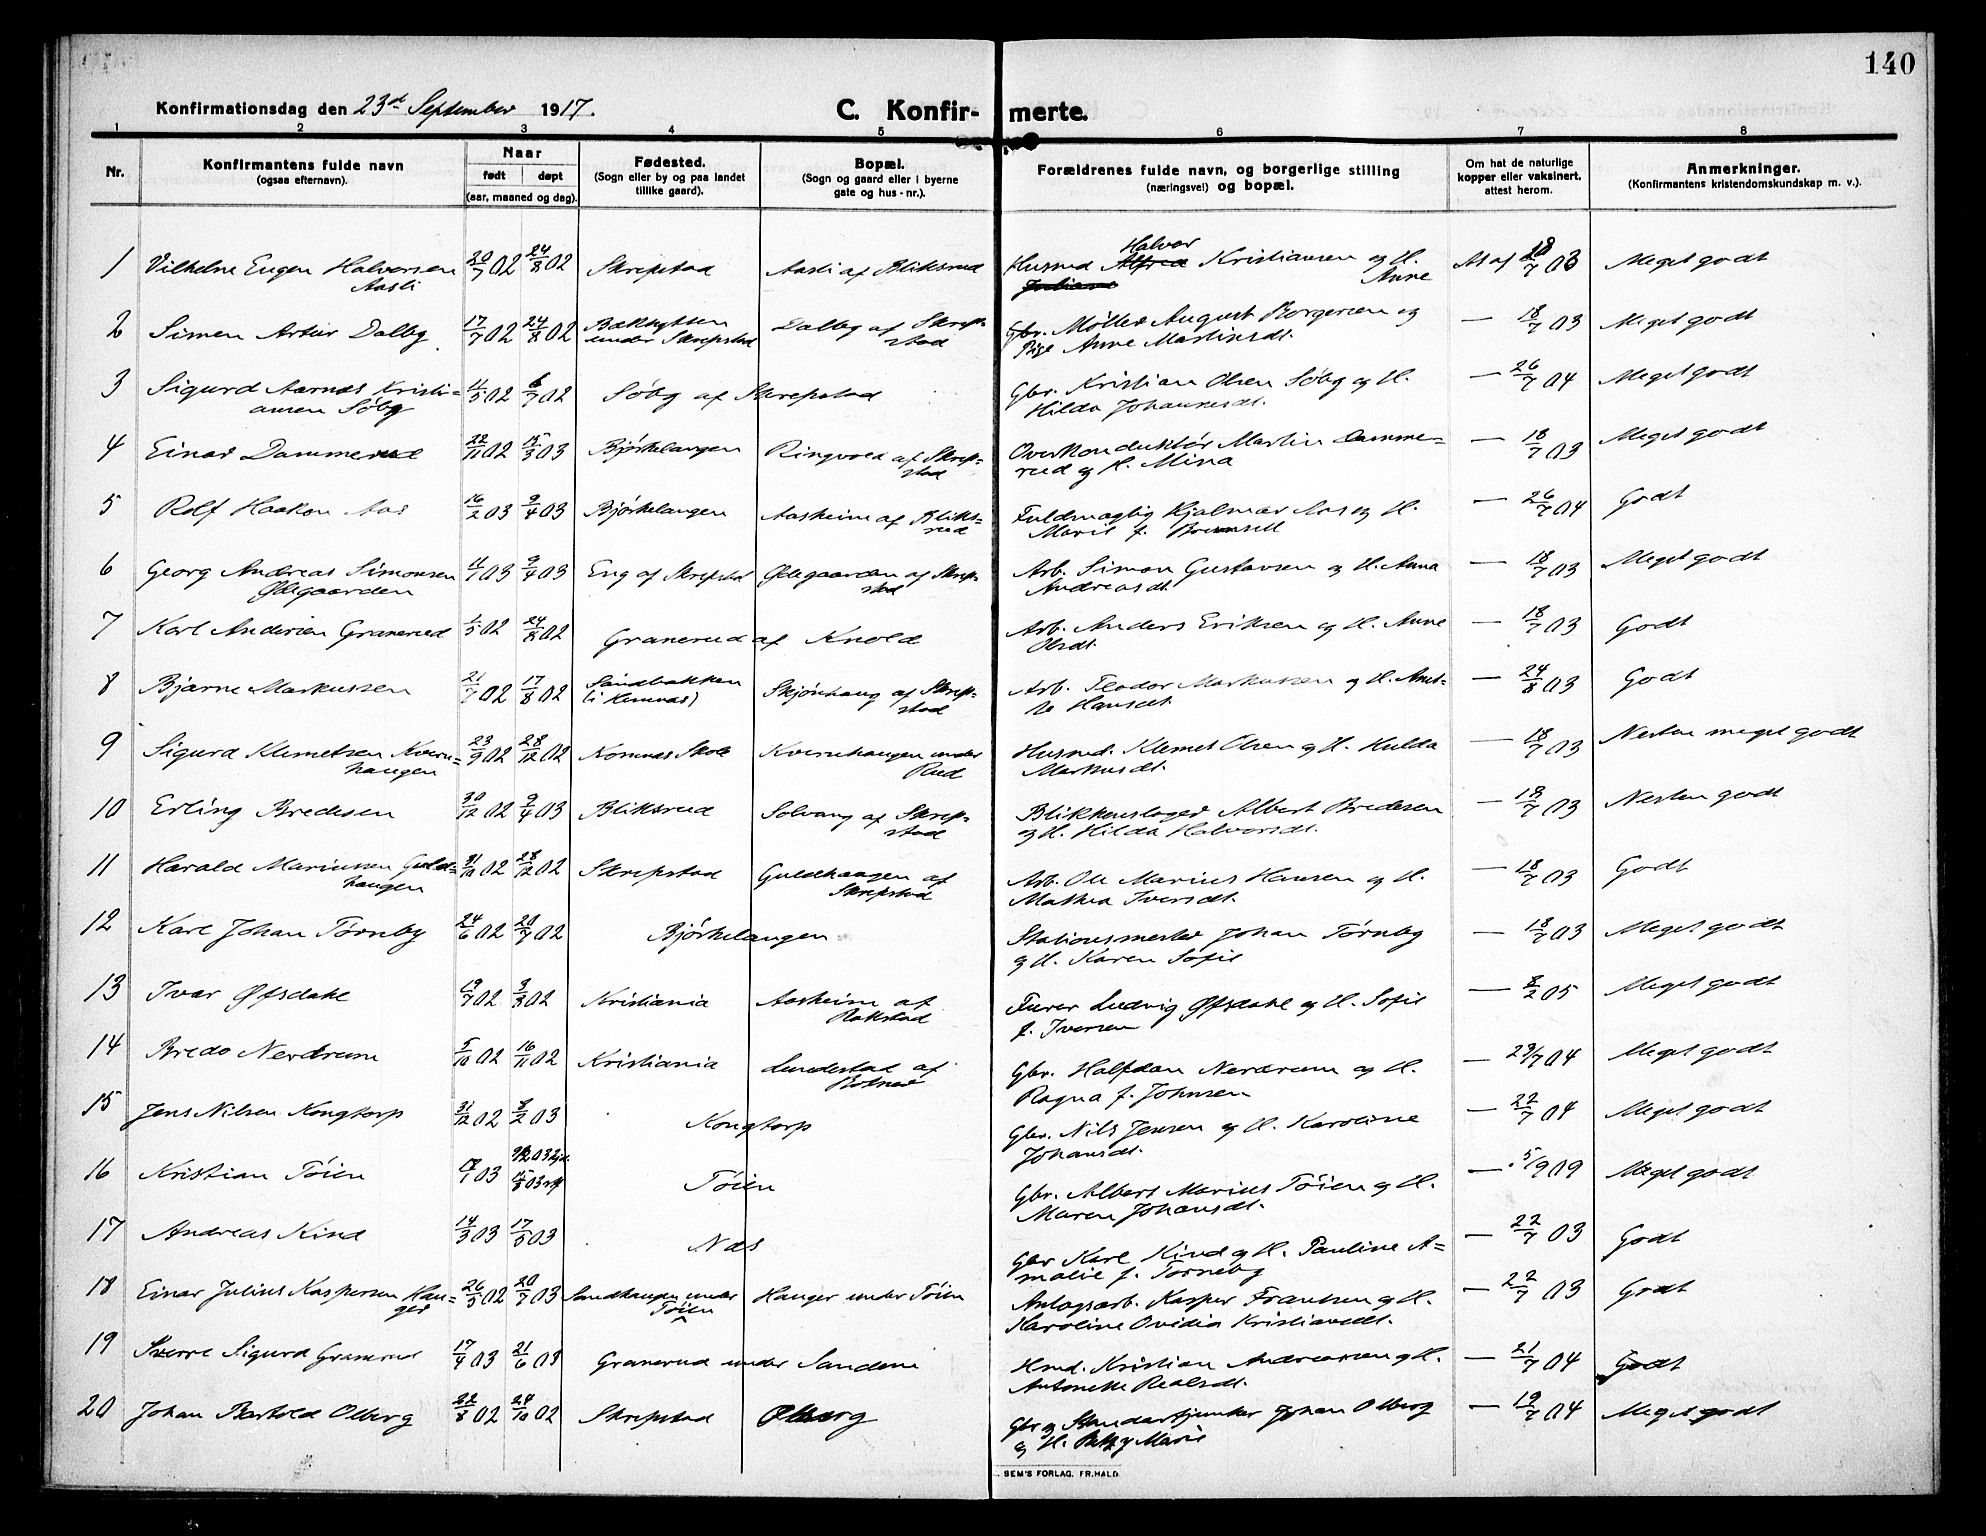 140
Konfirmationsdag den 23de September 1917.
C. Konfirmerte.
1 2 3 4 5 6 7 8
Nr.
Konfirmantens fulde navn
(ogsaa efternavn).
Naar
født døpt
(aar, maaned og dag).
Fødested.
(Sogn eller by og paa landet
tillike gaard).
Bopæl.
(Sogn og gaard eller i byerne
gate og hus-nr.).
Forældrenes fulde navn, og borgerlige stilling
(næringsvei) og bopæl.
Om hat de naturlige
kopper eller vaksinert,
attest herom.
Anmerkninger.
(Konfirmantens kristendomskundskap m. v.).
1 Vilhelm Eugen Halvorsen 20/7 02 24/8 02 Skrepstad Aasli af Bliksrud Husmd Halvor Kristiansen og H. At af 18/7 03 Meget godt
Aasli Anne
2 Simen Artur Dalby 17/7 02 24/8 02 Bakhytten Dalby af Skrep- Gbr. Møller August Borgersen og — 18/7 03 Meget godt
under Skrepstad stad Pige Anne Martinsdt.
3 Sigurd Aarnæs Kristi- 11/5 02 6/7 02 Søby af Skrepstad Gbr. Kristian Olsen Søby og H. — 26/7 04 Meget godt
ansen Søby Hilda Johannesdt.
4 Einar Dammerud 22/11 02 15/3 03 Bjørkelangen Ringvold af Skrep- Overkonduktør Martin Damme- — 18/7 03 Meget godt
stad rud og H. Mina
5 Rolf Haakon Aas 16/2 03 9/4 03 Bjørkelangen Aasheim af Bliks- Fuldmægtig Hjalmar Aas og H. — 26/7 04 Godt
rud Marie f.
6 Georg Andreas Simonsen 11/1 03 9/4 03 Eng af Skrepstad Ødegaarden af Skrep- Arb. Simon Gustavsen og H. Anna — 18/7 03 Meget godt
Ødegaarden stad Andreasdt.
7 Karl Andersen Granerud 1/5 02 24/8 02 Granerud af Knold Arb. Anders Eriksen og H. Anne — 18/7 03 Godt
Olsdt.
8 Bjarne Markussen 21/7 02 17/8 02 Sandbakken Skjønhaug af Skrep- Arb. Teodor Markussen og H. Anet- — 24/8 03 Godt
(i Hemnæs) stad te Hansdt.
9 Sigurd Klemetsen Kvern- 23/9 02 28/12 02 Komnæs Skole Kvernhaugen under Husmd. Klemet Olsen og H. Hulda — 18/7 03 Nesten meget godt
haugen Rud Markusdt.
10 Erling Bredesen 30/12 02 9/4 03 Bliksrud Solvang af Skrep- Blikkenslager Albert Bredesen — 18/7 03 Nesten godt
stad og H. Hilda Halvorsdt.
11 Harald Mariussen Guld- 31/10 02 28/12 02 Skrepstad Guldhaugen af Arb. Ole Marius Hansen og H. — 18/7 03 Godt
haugen Skrepstad Mathea Iversdt.
12 Karl Johan Tørnby 24/6 02 20/7 02 Bjørkelangen Stationsmester Johan Tørnby — 18/7 03 Meget godt
og H. Karen Sofie
13 Ivar Øfsdahl 19/7 02 3/8 02 Kristiania Aasheim af Furer Ludvig Øfsdahl og H. Sofie — 8/2 05 Meget godt
Rakstad f. Iversen
14 Bredo Nerdrum 5/10 02 16/11 02 Kristiania Lundestad af Gbr. Halfdan Nerdrum og H. — 23/7 04 Meget godt
Botner Ragna f. Johnsen
15 Jens Nilsen Kongtorp 31/12 02 8/2 03 Kongtorp Gbr. Nils Jensen og H. Karoline — 22/7 04 Meget godt
Johansdt.
16 Kristian Tøien 03 Tøien Gbr. Albert Marius Tøien og H. — 5/9 09 Meget godt
Maren Johansdt.
17 Andreas Kind 14/3 03 17/5 03 Næs Gbr Karl Kind og H. Pauline A- — 22/7 03 Godt
malie f. Tørneby
18 Einar Julius Kaspersen Hau- 26/5 02 20/7 03 Sandhaugen under Hauger under Tøien Anlægsarb. Kasper Frantsen og H. — 22/7 03 Godt
ger Tøien Karoline Ovidia Kristiansdt.
19 Sverre Sigurd Granerud 17/4 03 21/6 03 Granerud under Sanden Hmd. Kristian Andreassen og H. — 21/7 04 Godt
Antonette
20 Johan Bertold Olberg 22/8 02 24/10 02 Skrepstad Olberg Gbr og Standartjunker Johan Olberg — 19/7 04 Meget godt
og H. Betzy Marie
SEM'S FORLAG. FR.HALD.